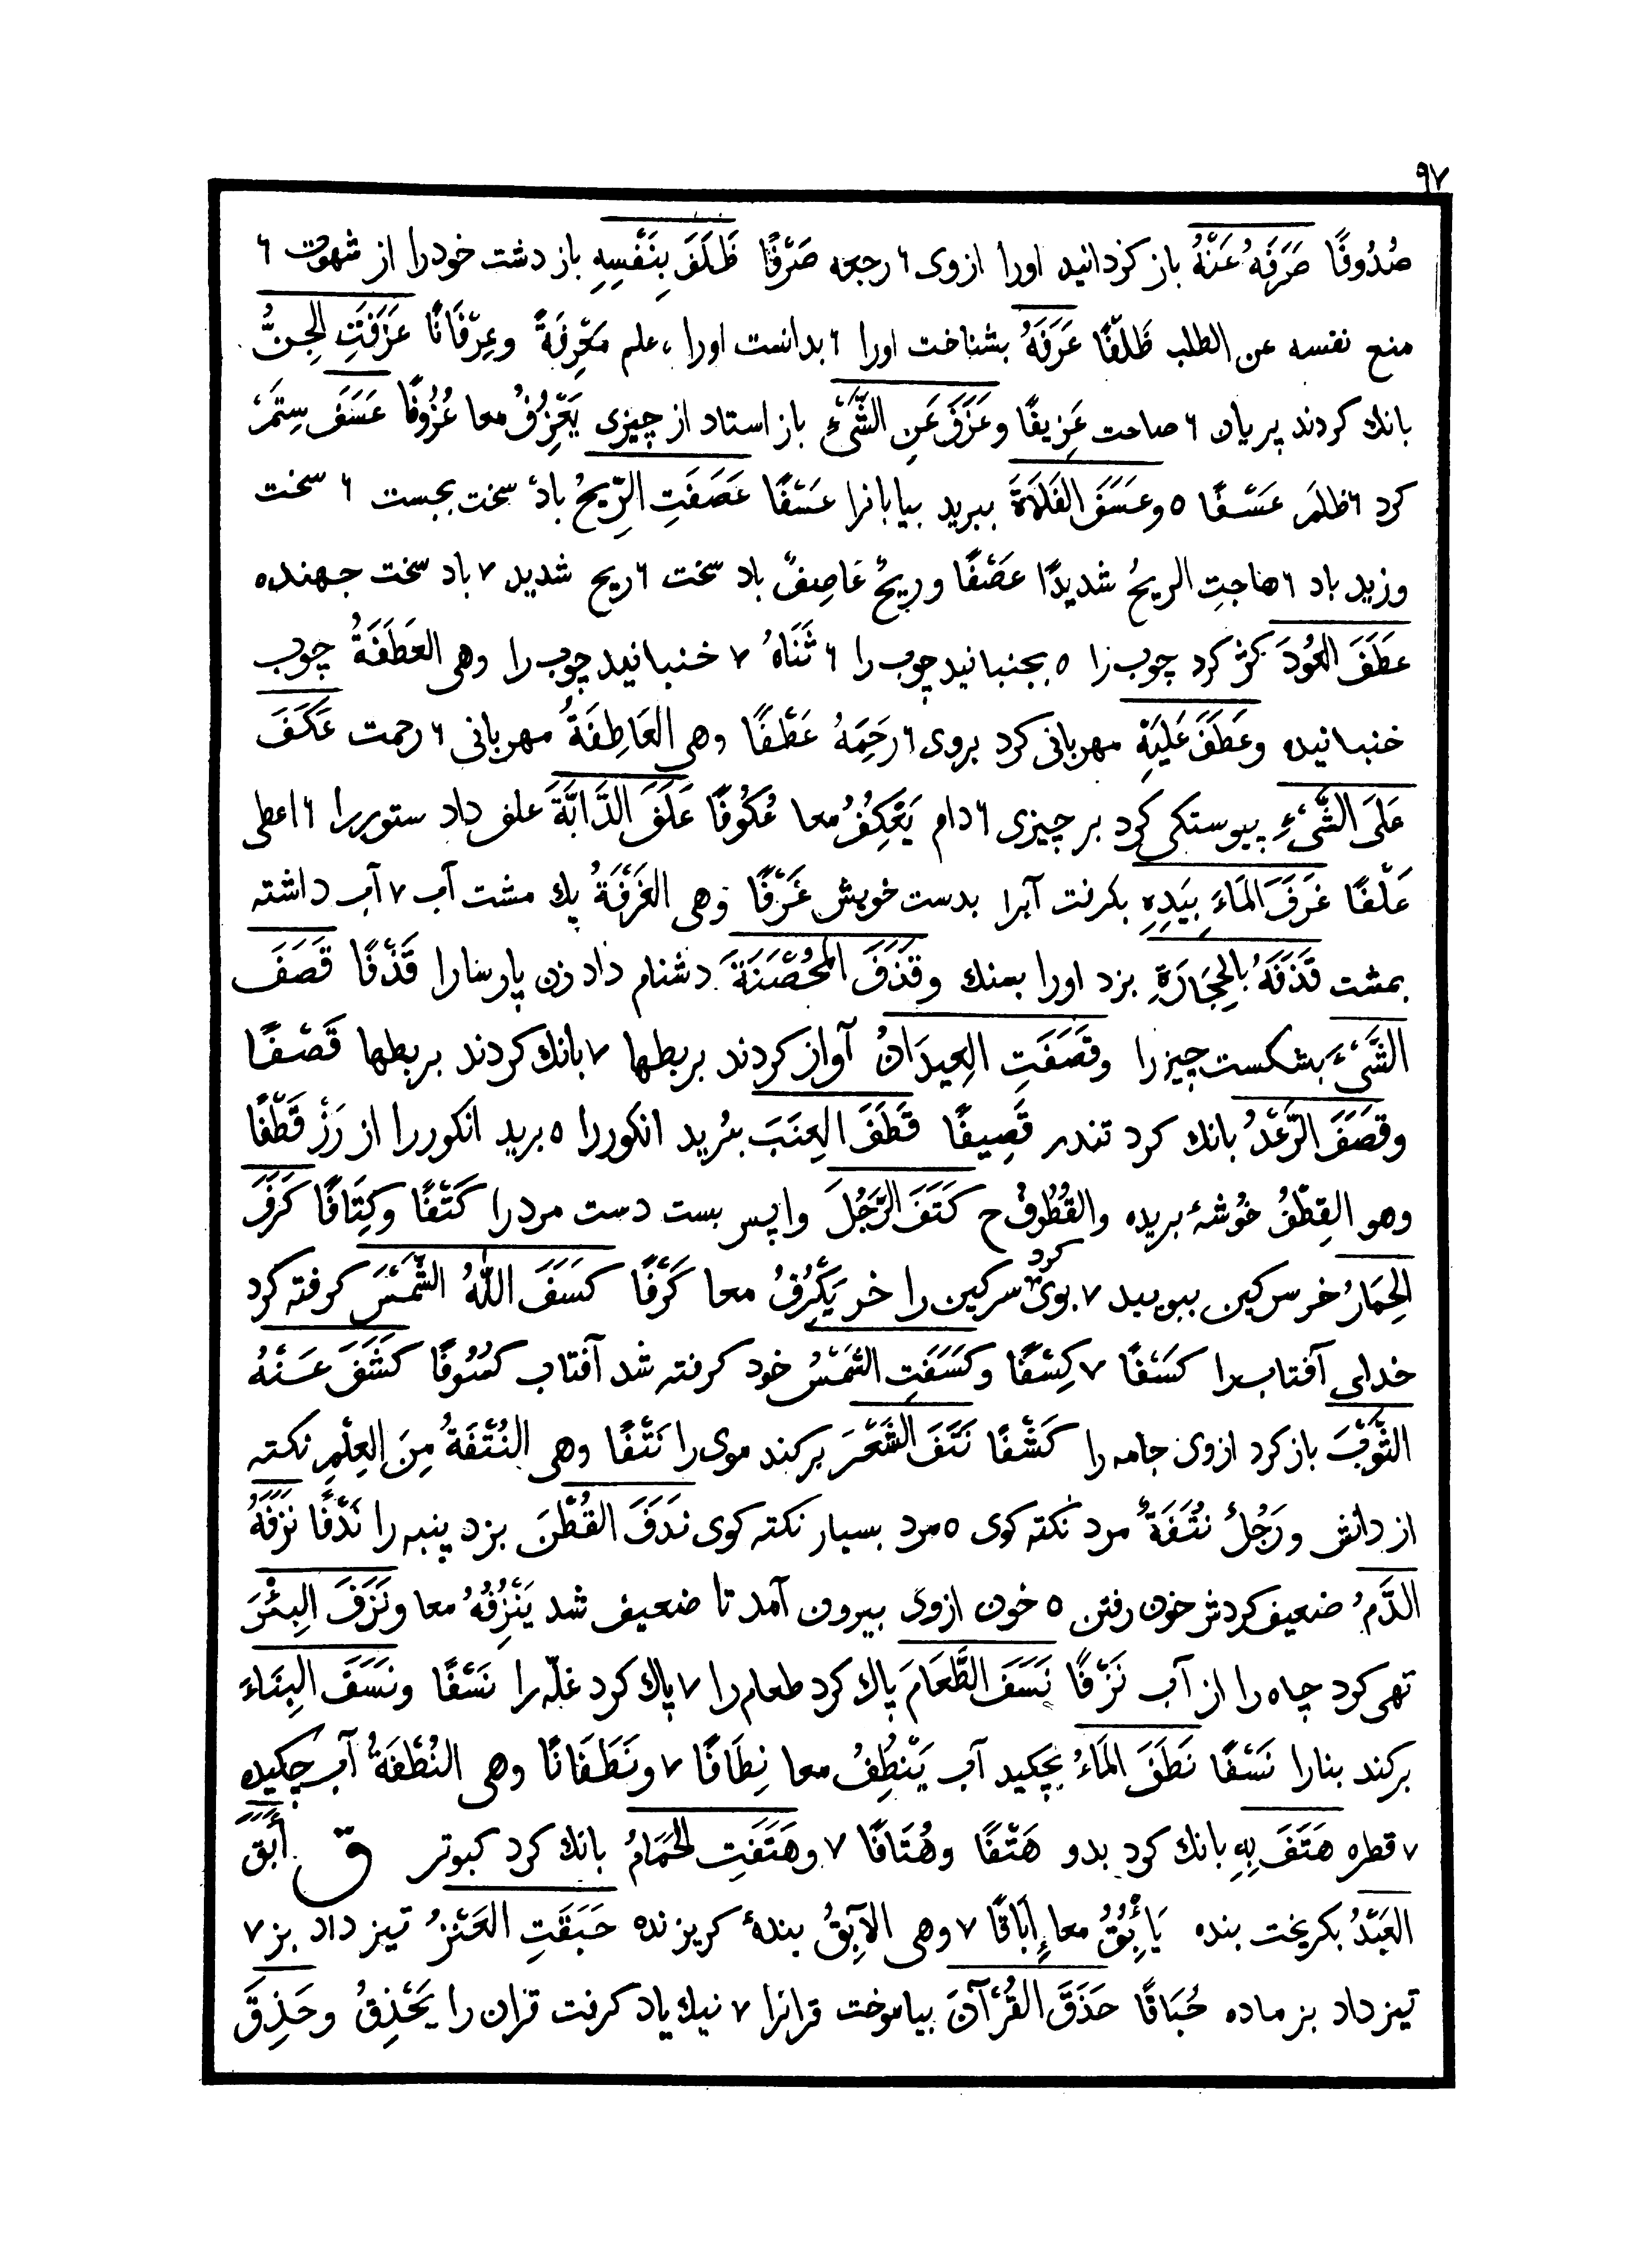 ٩٧
صُدُوفًا صَرَفَهُ عَنْهُ باز کردانید اورا ازوی ٦ رجعه صَرْفًا ظَلَفَ بِنَفْسِهِ باز دشت خودرا از شهوت ٦
منع نفسه عن الطلب ظَلْفًا عَرَفَهُ بشناخت اورا ٦ بدانست اورا، علم مَعْرِفَةً وعِرْفَانًا عَزَفَتِ الجِنُّ
بانك كردند پریان ٦ صاحت عَزِيفًا وعَزَفَ عَنِ الشَّيْءِ باز استاد از چیزی يَعْزِفُ معا عُزُوفًا عَسَفَ سِتَمْ
كرد ٦ ظلمَ عَسْفًا ٥ وعَسَفَ الفَلَاةَ ببرید بیابانرا عَسْفًا عَصَفَتِ الرِّيحُ بادْ سخت بجست ٦ سخت
وزید باد ٦ هاجتِ الريحُ شديدًا عَصْفًا وريحٌ عَاصِفٌ باد سخت ٦ ريح شديد ٧ باد سخت جهنده
عَطَفَ العُودَ كژ كرد چوب را ٥ بجنبانید چوب را ٦ ثَنَاهُ ٧ خنبانید چوب را وهی العَطَفَةُ چوب
خنبانیده وعَطَفَ عَلَيْهِ مهربانی كرد بروی ٦ رَحِمَهُ عَطْفًا وهی العَاطِفَةُ مهربانی ٦ رحمت عَكَفَ
عَلَى الشَّيْءِ پیوستكی كرد بر چیزی ٦ دام يَعْكِفُ معا عُكُوفًا عَلَفَ الدَّابَّةَ علف داد ستوررا ٦ اعطی
عَلْفًا غَرَفَ المَاءَ بِيَدِهِ بكرفت آبرا بدست خویش غَرْفًا وهی الغَرْفَةُ یك مشت آب ٧ آب داشته
بمشت قَذَفَهُ بالحِجَارَةِ بزد اورا بسنك وقَذَفَ المُحْصَنَةَ دشنام داد زن پارسارا قَذْفًا قَصَفَ
الشَّيْءَ بشكست چیز را وقَصَفَتِ العِيدَانُ آواز كردند بربطها ٧ بانك كردند بربطها قَصْفًا
وقصَفَ الرَّعْدُ بانك كرد تندر قَصِيفًا قَطَفَ العِنَبَ ببُرید انكوررا ٥ برید انكوررا از رَزْ قَطْفًا
وهو القِطْفُ خُوشهٔ بریده والقُطُوفُ ح كَتَفَ الرَّجُلَ واپس بست دست مرد را كَتْفًا وكِتَافًا كَرَفَ
الحِمَارُ خر سركین ببویید ٧ بوی كرد سركین را خر يَكْرُفُ معا كَرْفًا كسَفَ اللّٰهُ الشَّمْسَ كرفته كرد
خدای آفتاب را كسْفًا ٧ كِسْفًا وكسَفَتِ الشَّمْسُ خود كرفته شد آفتاب كُسُوفًا كشَفَ عَنْهُ
الثَّوْبَ باز كرد ازوی جامه را كَشْفًا نَتَفَ الشَّعْرَ بركند موی را نَتْفًا وهی النُتْفَةُ مِنَ العِلْمِ نكته
از دانش ورَجُلٌ نُتَفَةٌ مرد نكته كوی ٥ مرد بسیار نكته كوی نَدَفَ القُطْنَ بزد پنبه را نَدْفًا نزَفَهُ
الدَّمُ ضعیف كردش خون رفتن ٥ خون ازوی بیرون آمد تا ضعیف شد يَنْزِفُهُ معا ونَزَفَ البِئْرَ
تهی كرد چاه را از آب نَزْفًا نَسَفَ الطَّعَامَ پاك كرد طعام را ٧ پاك كرد غلّه را نَسْفًا ونسَفَ البِنَاءَ
بركند بنارا نَسْفًا نَطَفَ المَاءُ بچكید آب يَنْطِفُ معا نِطَافًا ٧ ونَطَفَانًا وهی النُطْفَةُ آب چكیده
٧ قطره هَتَفَ بِهِ بانك كرد بدو هَتْفًا وهُتَافًا ٧ وهَتَفَتِ الحَمَامُ بانك كرد كبوتر ق أَبَقَ
العَبْدُ بكریخت بنده يَأْبُقُ معا إِبَاقًا ٧ وهی الآبِقُ بندهٔ كریزنده حَبَقَتِ العَنْزُ تیز داد بز ٧
تیز داد بز ماده حُبَاقًا حَذَقَ القُرْآنَ بیاموخت قرانرا ٧ نیك یاد كرفت قران را يَحْذِقُ وحَذِقَ